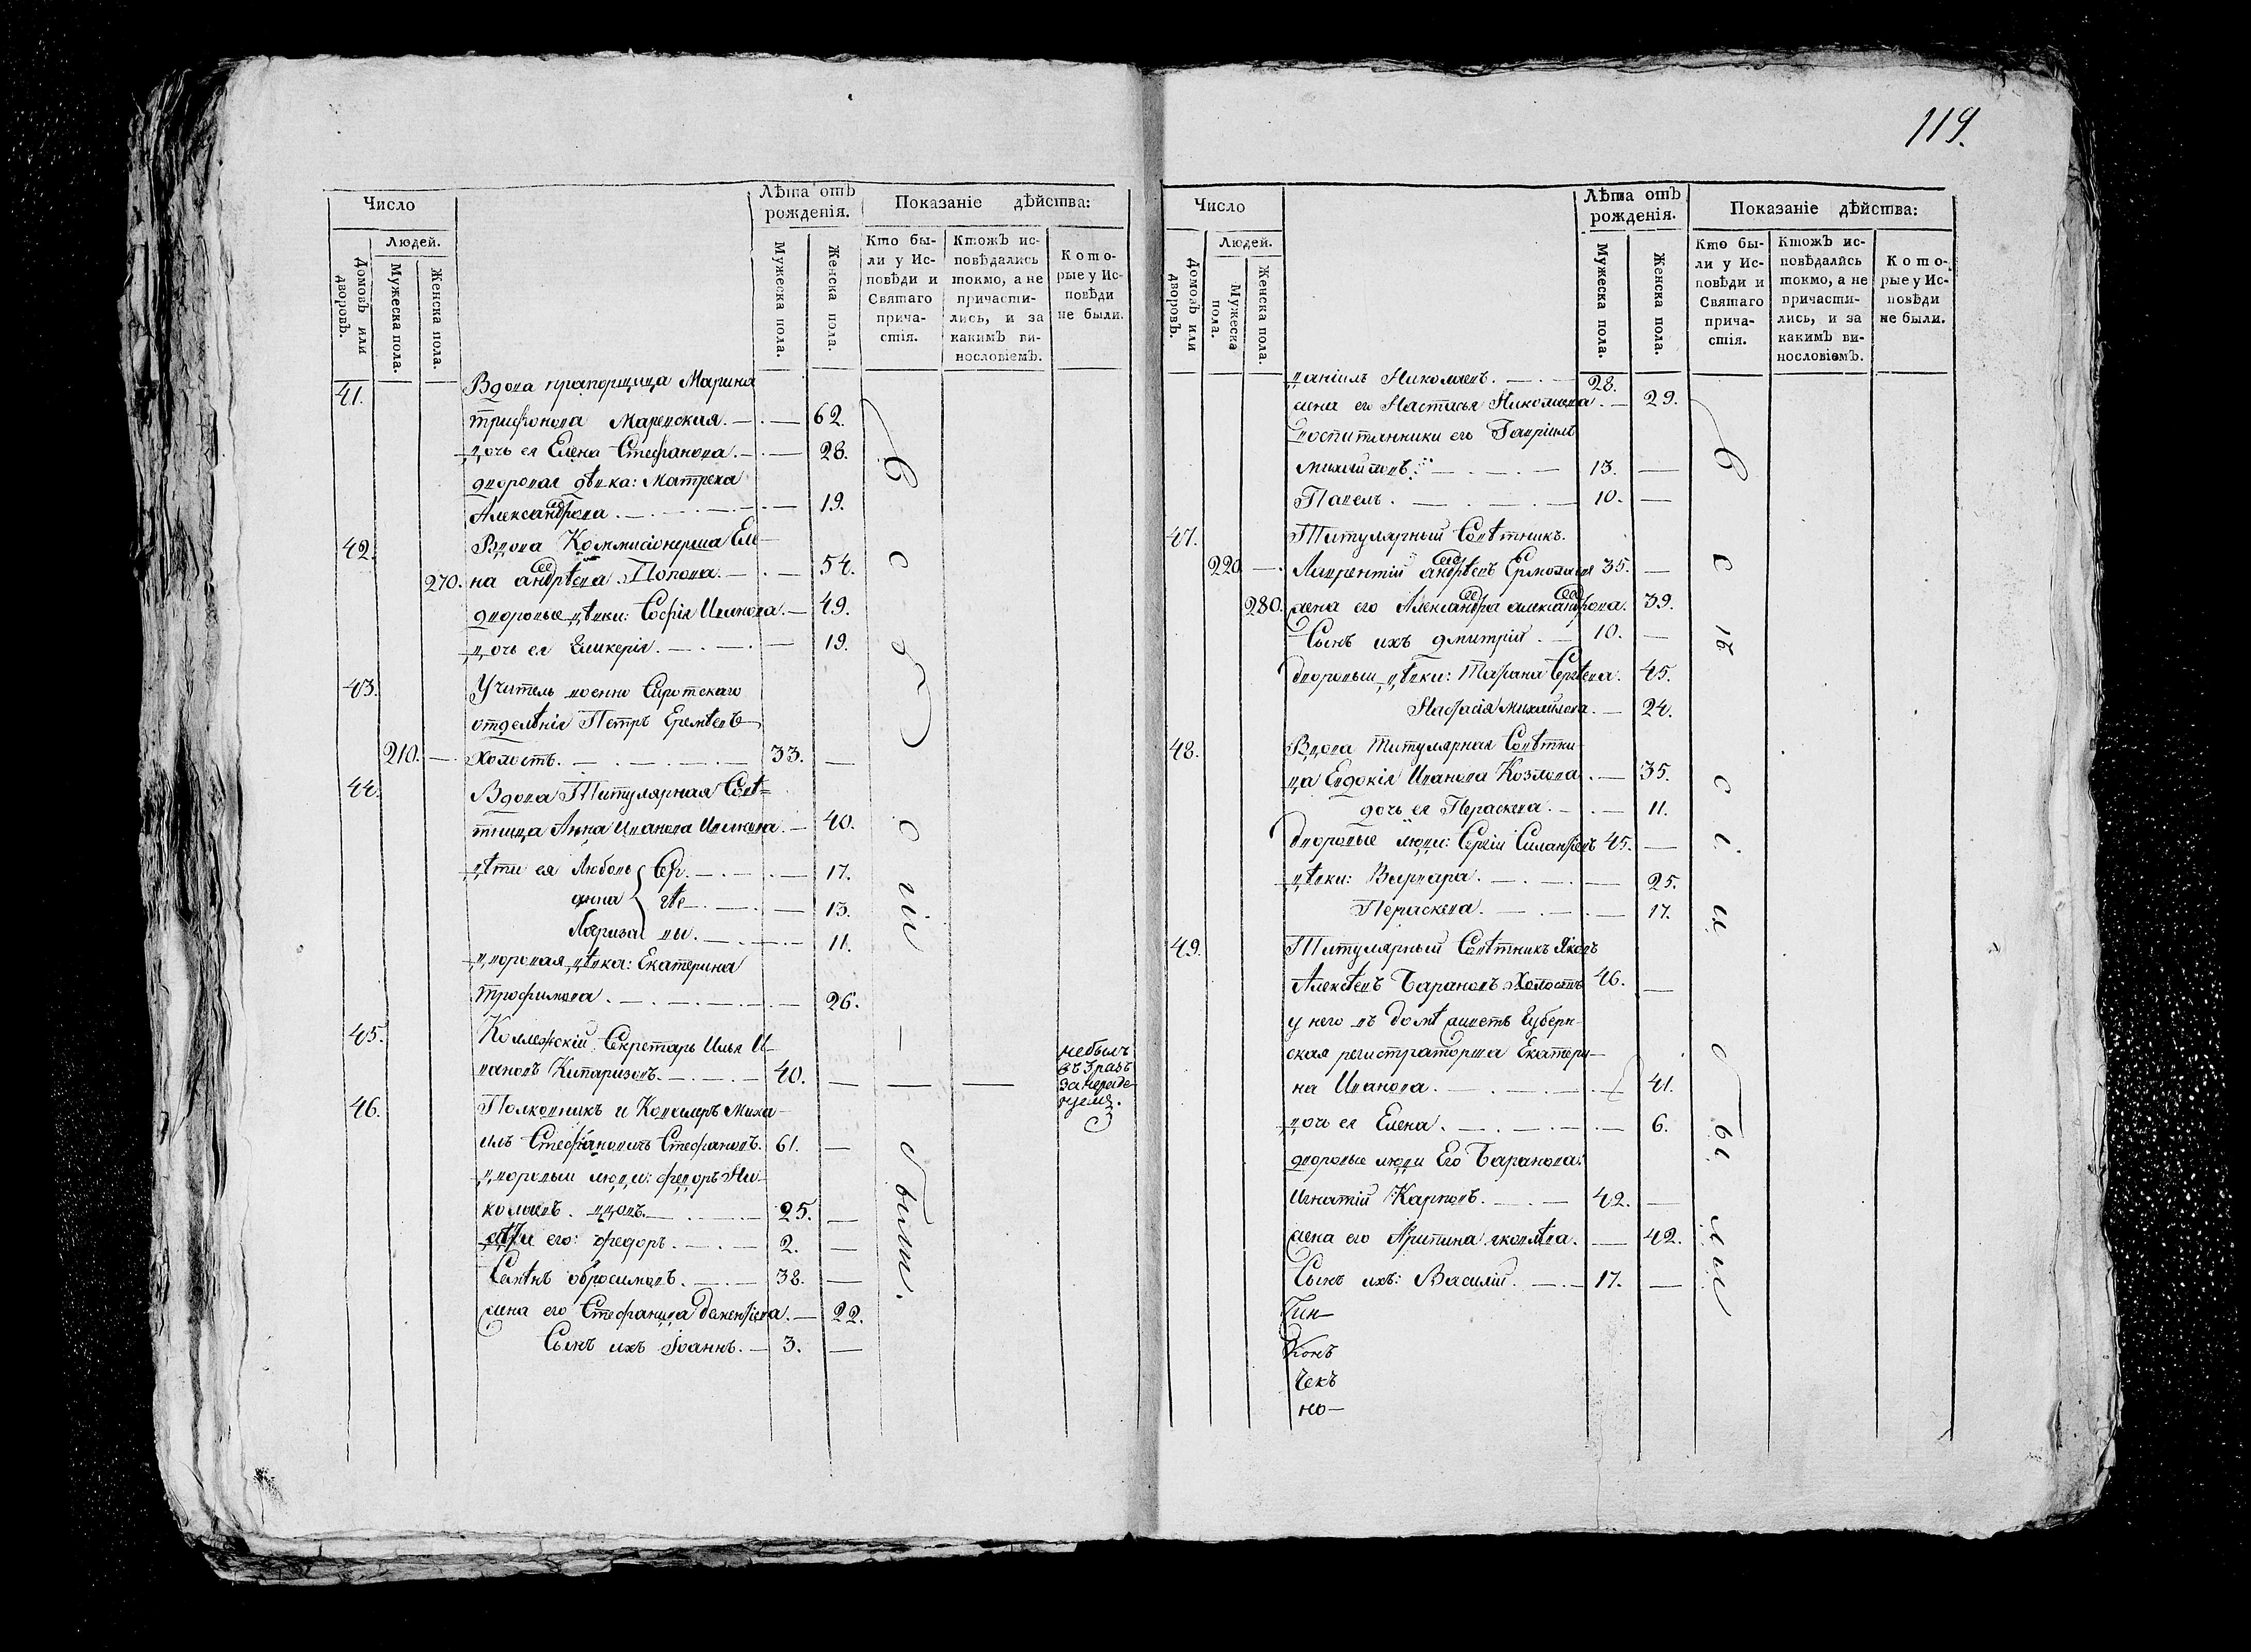 119.
Число
Лѣта отъ
рожденія.
Показаніе дѣйства:
Людей.
Домовъ или
дворовъ.
Мужеска пола.
Женска пола.
Мужеска пола.
Женска пола.
Кто бы-
ли у Ис-
повѣди и
Святаго
прича-
стія.
Ктожъ ис-
повѣдались
токмо, а не
причасти-
лись, и за
какимъ ви-
нословіемъ.
Кото-
рые у Ис-
повѣди
не были.
41. Вдова прапорщица Марина
трифонова Маревская. 62.
дочь ея Елена Стефанова. 28.
дворовая дѣвка: Матрена
Александрова. 19.
42. Вдова Коммисіонерша Еле-
270. на андрѣева Попова. 54.
дворовые дѣвки: Софія Иванова. 49.
дочь ея Гликерія. 19.
43. Учитель военно Сиротскаго
отделѣнія Петръ Еремѣевъ
210. — Холостъ. 33. —
44. Вдова Титулярная Совѣ=
тница Анна Иванова Ивакова. 40.
дѣти ея Любовь Сер. 17.
анна гѣе 13.
Лариза ви. 11.
дворовая дѣвка: Екатерина
трофимова. 26.
45. Коллежскій Секретарь Илья И-
вановъ Китаризовъ. 40. — — —
небылъ
въ 3 разъ
занераде
ніемъ.
46. Полковникъ и Кавалеръ Миха-
илъ Стефановичь Стефановъ. 61. —
дворовыи люди: федоръ Ни-
колаевъ. вдовъ. 25. —
дѣти его: федоръ. 2. —
Савѣнъ обросимовъ. 38. —
жена его Стефанида дементіева. — 22.
Сынъ ихъ Іоаннъ. 3. —
Число
Лѣта отъ
рожденія.
Показаніе дѣйства:
Людей.
Домовъ или
дворовъ.
Мужеска
пола.
Женска пола.
Мужеска пола.
Женска пола.
Кто бы-
ли у Ис-
повѣди и
Святаго
прича-
стія.
Ктожъ ис-
повѣдались
токмо, а не
причасти-
лись, и за
какимъ ви-
нословіемъ.
Кото-
рые у Ис-
повѣди
не были.
даніилъ Николаевъ. 28.
жена его Настасья Николаева. — 29.
воспитанники его Гавріилъ
михайловъ. 13. —
Павелъ. 10. —
47. Титулярный Совѣтникъ.
220. — Лаврентій андрѣевъ Ермолаевъ 35. —
280. жена его Александра александрова. 39.
Сынъ ихъ дмитрій. 10. —
дворовыи дѣвки: Татіана Сергѣева. 45.
Настасія Михайлова. — 24.
48. Вдова Титулярная Совѣтни-
ца Евдокія Иванова Козлова. — 35.
дочь ея Параскева. — 11.
дворовые люди: Сергій Силантіевъ 45. —
дѣвки: Варвара. — 25.
Параскева. — 17.
49. Титулярный Совѣтникъ Яковъ
Алексѣевъ Барановъ Холостъ 46. —
у него въ домѣ живетъ Губерн-
ская регистраторша Екатери-
на Иванова. 41.
дочь ея Елена. — 6.
дворовые люди Его Баранова:
Игнатій Карповъ. 42. —
жена его Ирина яковлѣва. — 42.
Сынъ ихъ: Василій. 17. —